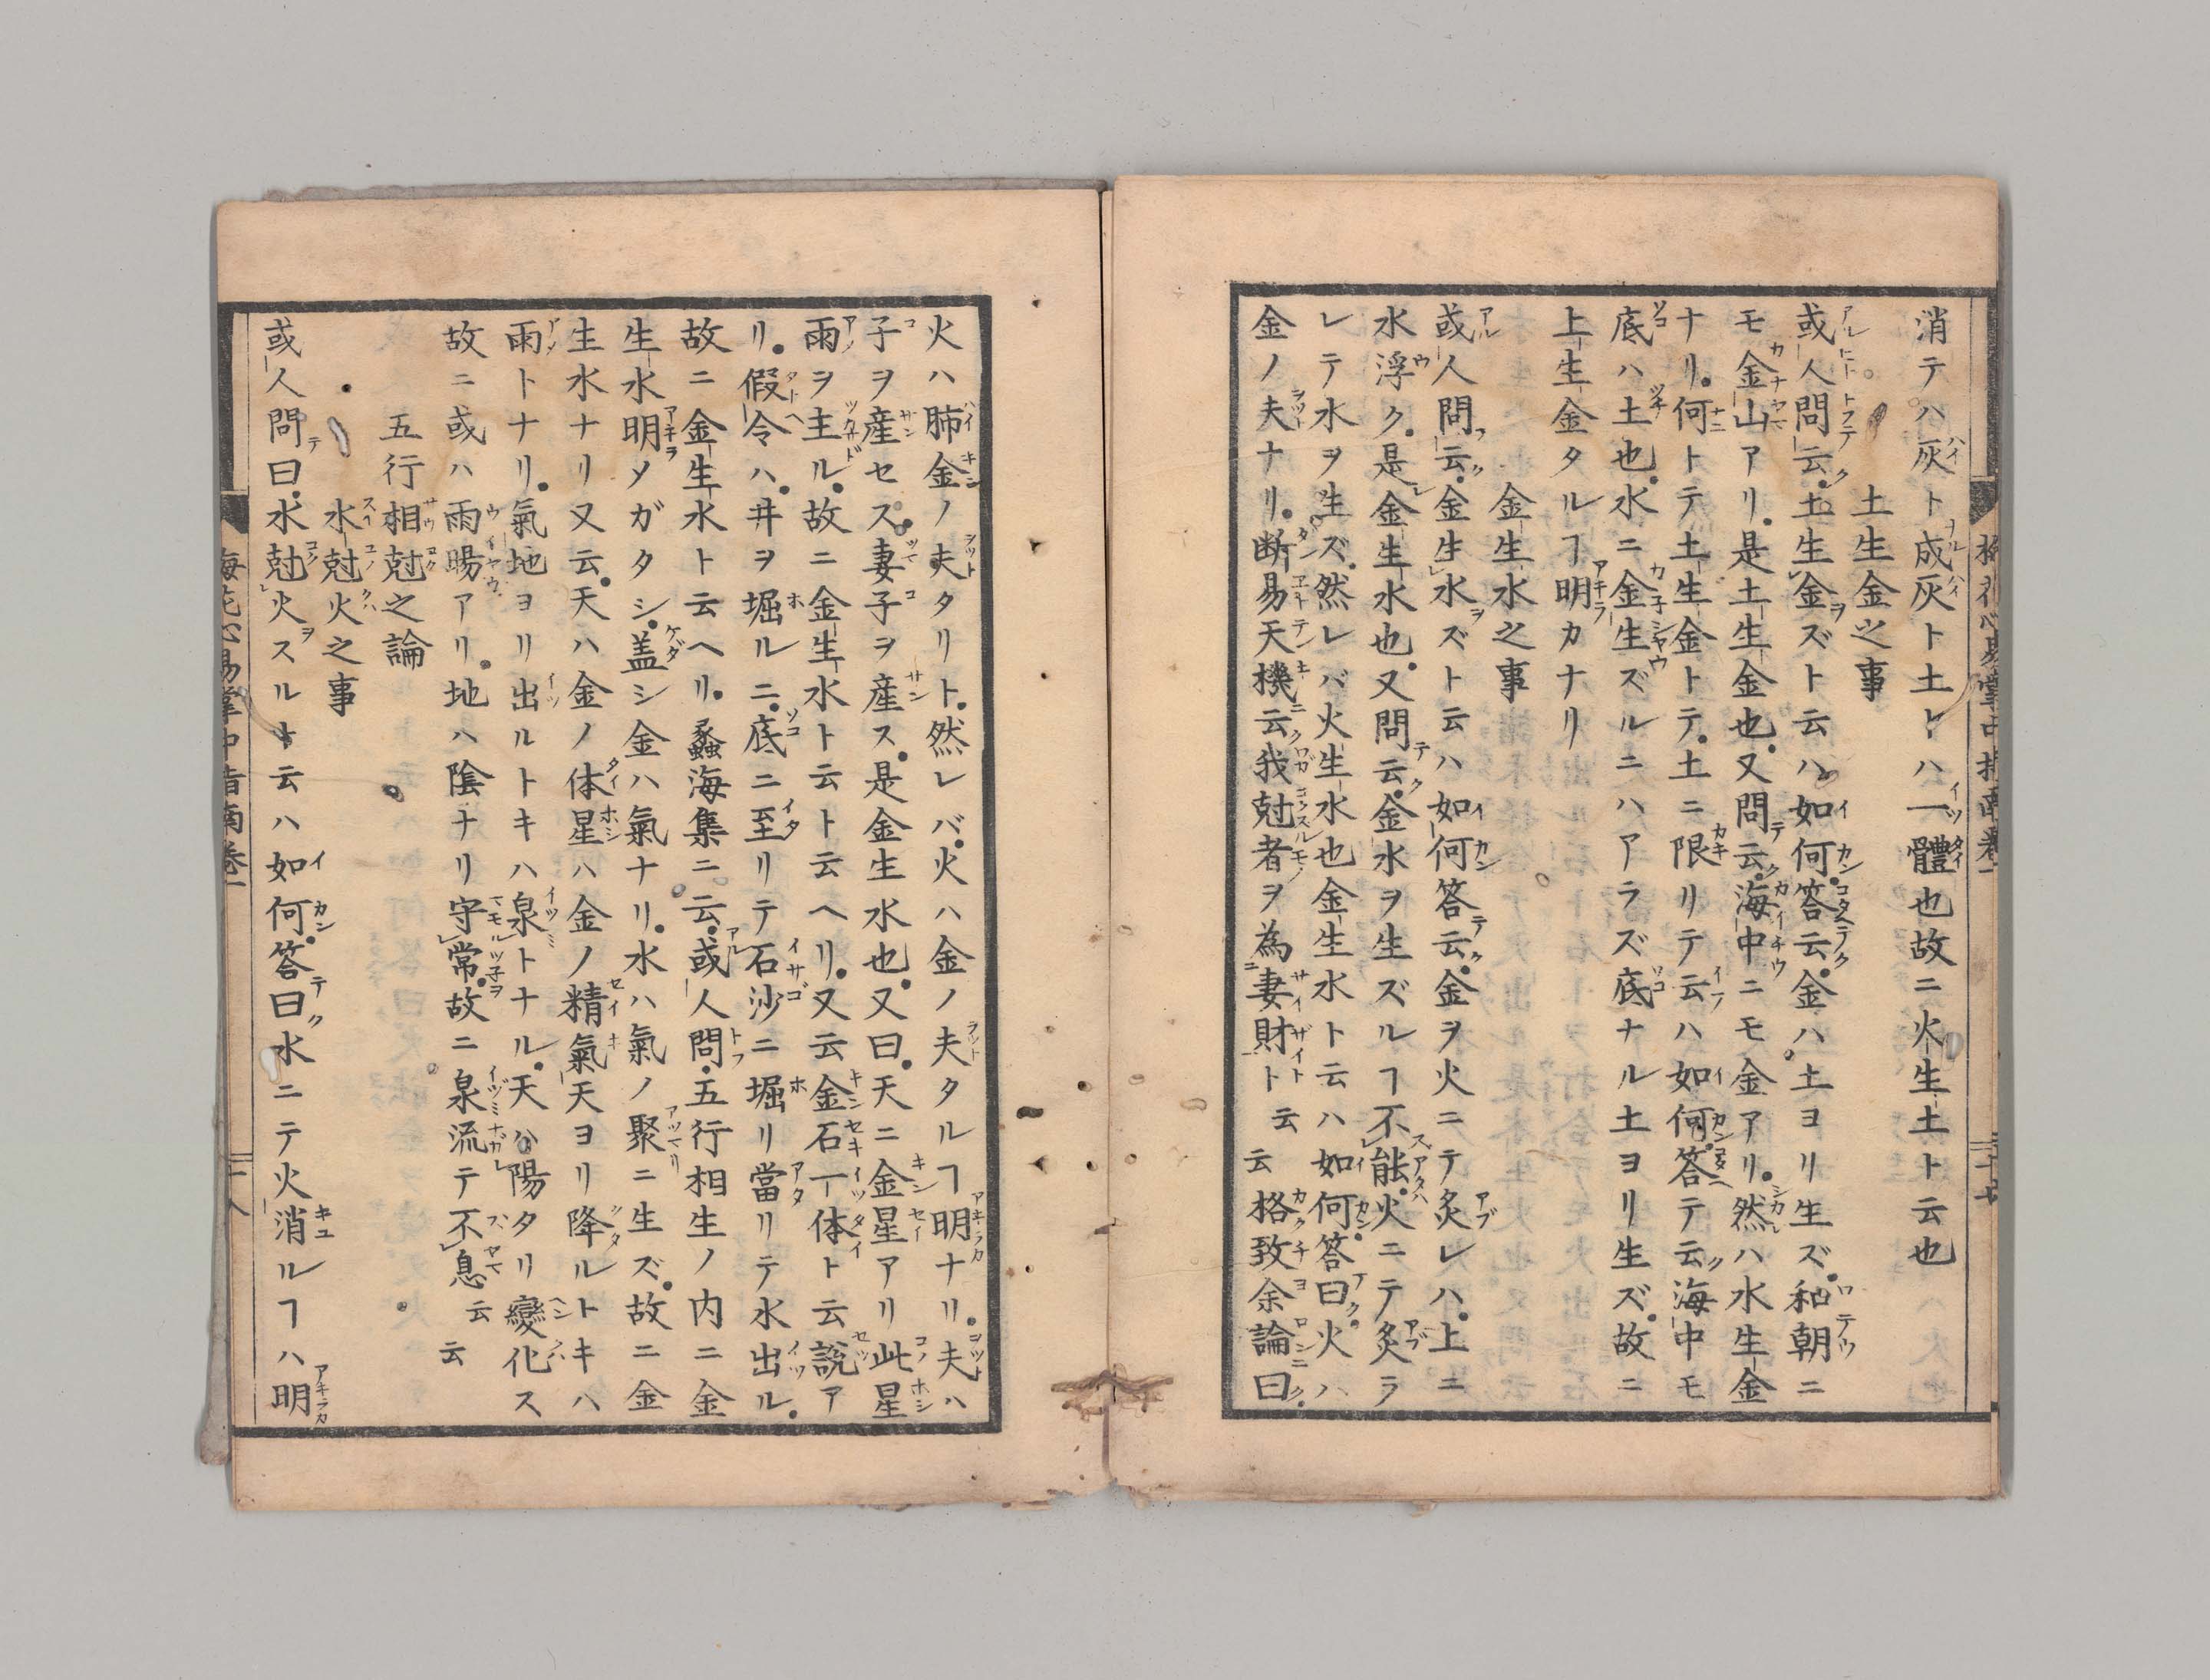 消テハ灰ト成灰ト土トハ一體也故ニ火生土ト云也
土生金之事
或人問云土生金ズト云ハ如何答云金ハ土ヨリ生ズ和朝ニ
モ金山アリ是土生金也又問云海中ニモ金アリ然ハ水生金
ナリ何トテ土生金トテ土ニ限リテ云ハ如何答テ云海中モ
底ハ土也水ニ金生ズルニハアラズ底ナル土ヨリ生ズ故ニ
土生金タルヿ明カナリ
金生水之事
或人問云金生水ズト云ハ如何答云金ヲ火ニテ炙レハ上ニ
水浮ク是金生水也又問云金水ヲ生ズルヿ不能火ニテ炙ラ
レテ水ヲ生ズ然レバ火生水也金生水ト云ハ如何答曰火ハ
金ノ夫ナリ断易天機云我尅者ヲ為妻財ト云云格致余論曰
火ハ肺金ノ夫タリト然レバ火ハ金ノ夫タルヿ明ナリ夫ハ
子ヲ産セス妻子ヲ産ス是金生水也又曰天ニ金星アリ此星
雨ヲ主ル故ニ金生水ト云ト云ヘリ又云金石一体ト云説ア
リ假令ハ井ヲ堀ルニ底ニ至リテ石沙ニ堀リ當リテ水出ル
故ニ金生水ト云ヘリ蠡海集ニ云或人問五行相生ノ内ニ金
生水明メガタシ盖シ金ハ氣ナリ水ハ氣ノ聚ニ生ズ故ニ金
生水ナリ又云天ハ金ノ体星ハ金ノ精氣天ヨリ降ルトキハ
雨トナリ氣地ヨリ出ルトキハ泉トナル天ハ陽タリ變化ス
故ニ或ハ雨暘アリ地ハ陰ナリ守常故ニ泉流テ不息云云
五行相尅之論
水尅火之事
或人問曰水尅火スルト云ハ如何答曰水ニテ火消ルヿハ明